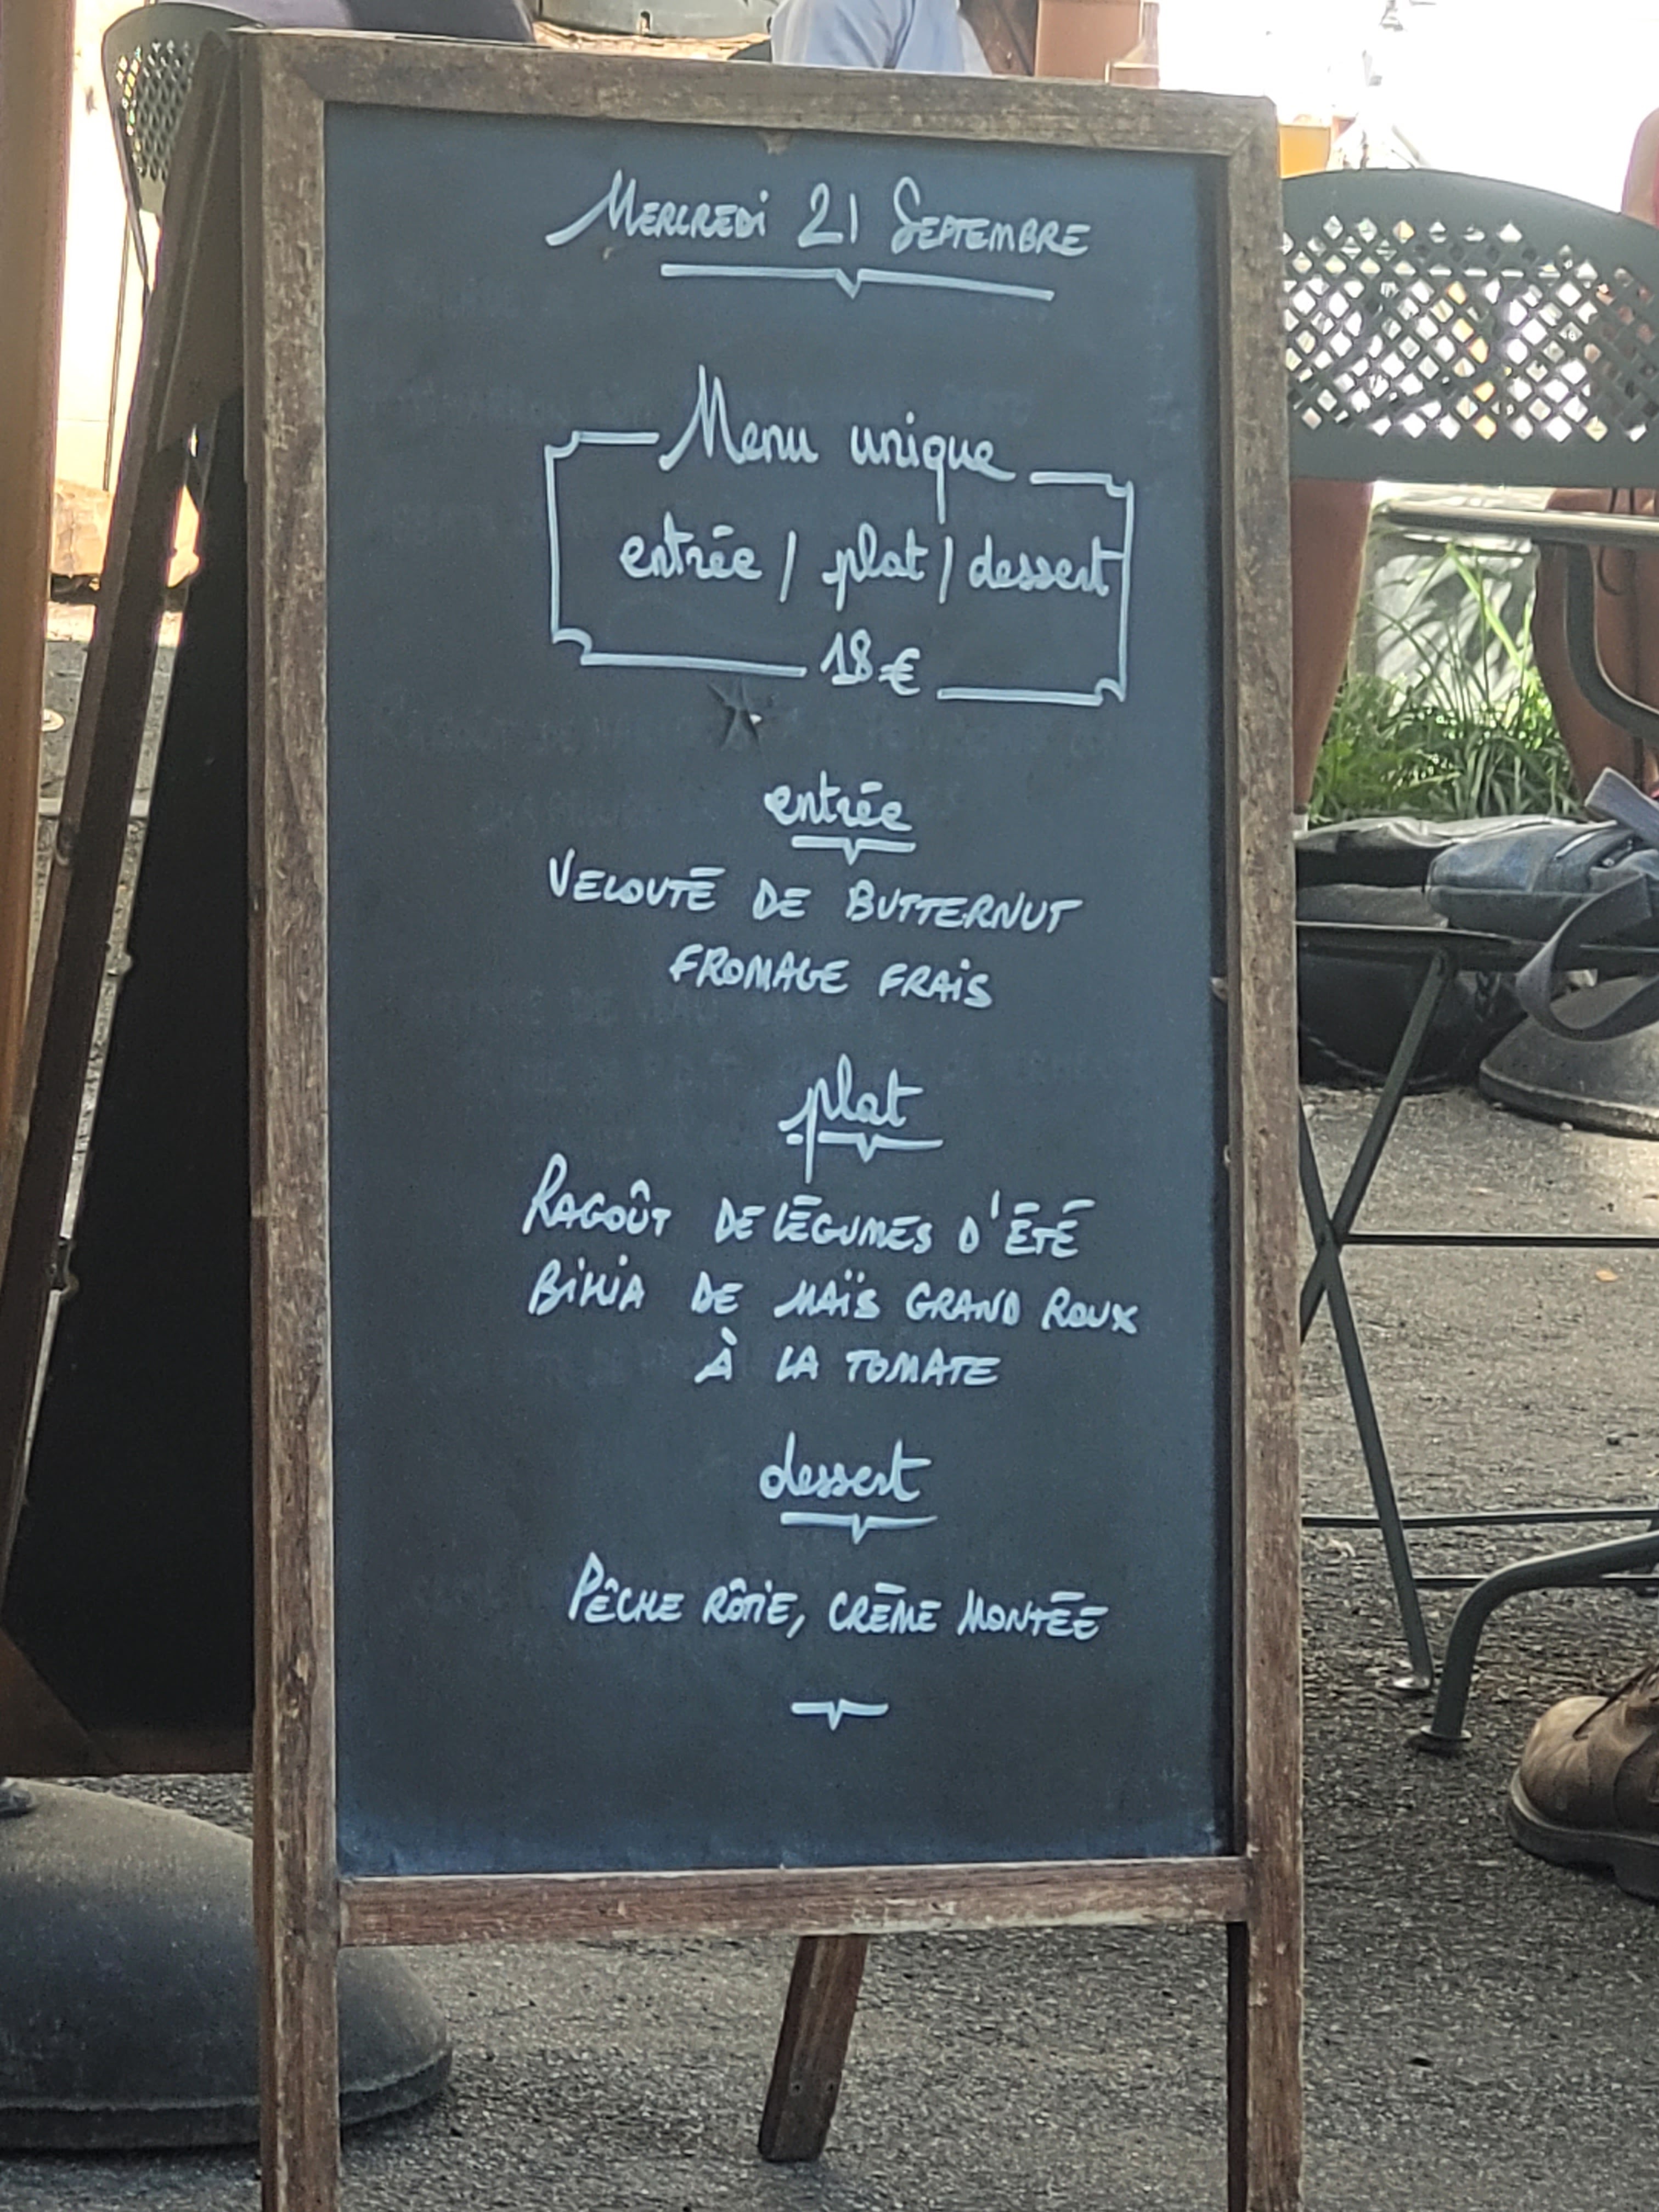 MERCREDI 21 SEPTEMBRE
Menu unique
entrée / plat / dessert
18€
entrée
VELOUTÉ DE BUTTERNUT
FROMAGE FRAIS
plat
RAGOÛT DE LÉGUMES D'ÉTÉ
DE MAÏS GRAND ROUX
À LA TOMATE
dessert
PÊCHE RÔTIE, CRÈME MONTÉE